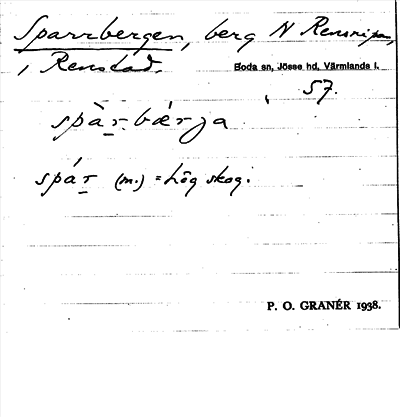 Sparrbergen, berg N Rensripan,
i Renstad. Boda sn, Jösse hd, Värmlands l.
57.
spàr bærja
spár (m.) = hög skog.
P. O. GRANÉR 1938.